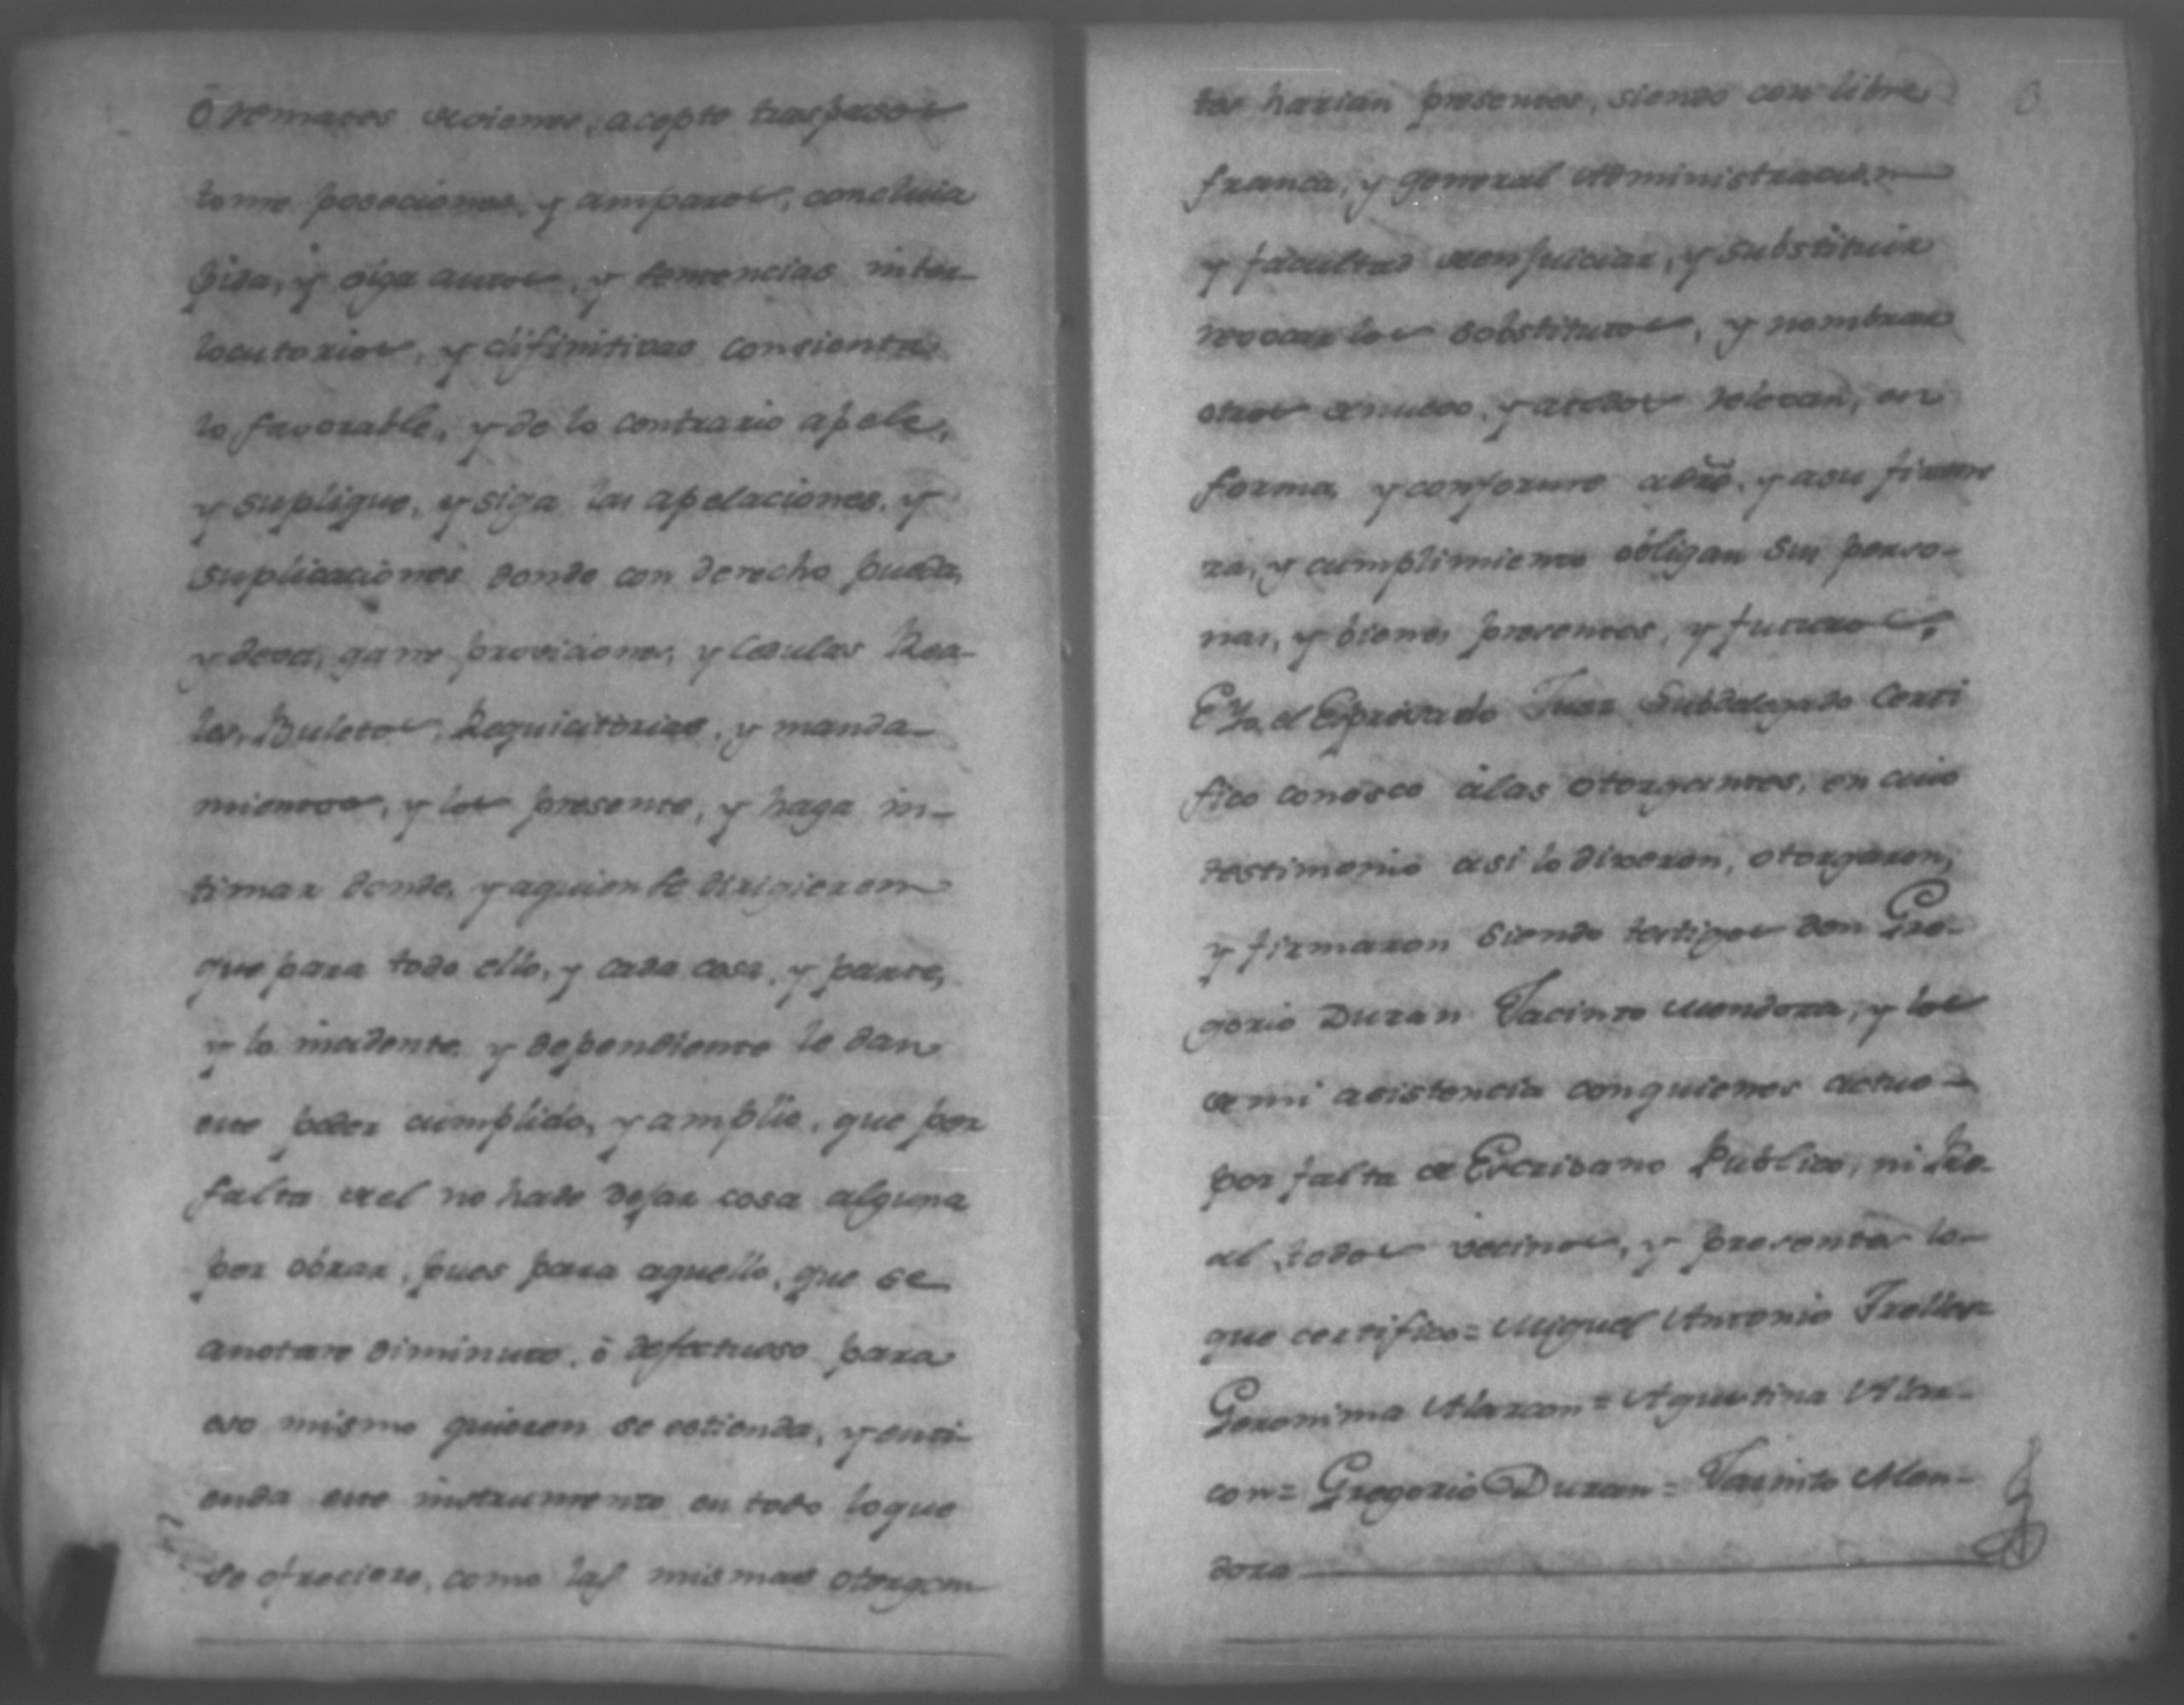 ò remates acciones, acepte traspasos
tome poseciones, y amparos, concluia
pida, y oiga autos, y sentencias inter
locutorios, y difinitivas consienta
lo favorable, y de lo contrario apele,
y suplique, y siga las apelaciones, y
suplicaciones donde con derecho pueda,
y deva, gane proviciones, y Cedulas Rea-
les, Buletos, Requicitorias, y manda-
mientos, y los presente, y haga in-
timar donde, y aquien se dirigieren
que para todo ello, y cada cosa, y parte,
y lo incidente, y dependiente le dan
este poder cumplido, y amplio, que por
falta de el no hade dejar cosa alguna
por obrar, pues para aquello, que se
anotare diminuto, ò defectuoso para
eso mismo quieren se estienda, y enti-
enda este instrumento en todo loque
se ofreciere, como las mismas otorgan
tes harian presentes, siendo con libre
franca, y general Administracion
y facultad de enjuiciar, y substituir
revocar los sobstitutos, y nombrar
otros de nuevo, y atodos relevan, en
forma, y conforme adro. y asu firme
za, y cumplimiento obligan sus perso-
nas, y bienes presentes, y futuros,
E Yo, el Espresado Juez Subdelegado Certi
fico conosco àlas otorgantes, en cuio
testimonio asi lo dixeron, otorgaron,
y firmaron siendo testigos don Gre-
gorio Duran Jacinto Mendoza, y los
de mi asistencia conquienes actuo
por falta de Escribano Publico, ni Re-
al, todos vecinos, y presentes lo
que certifico = Miguel Antonio Trelles
Geronima Alarcon = Agustina Alar-
con = Gregorio Duran = Jacinto Men-
doza